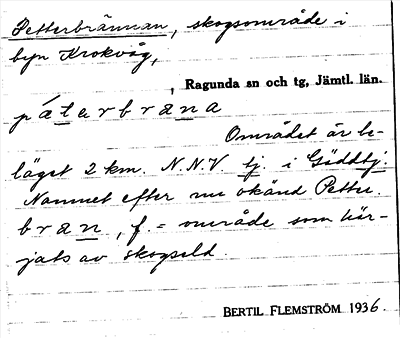 Petterbrännan, skogsområde i
byn Krokvåg,
, Ragunda sn och tg, Jämtl. län.
pætarbræna
Området är be-
läget 2 km. N.N.V. tj. i Gäddtj.
Namnet efter nu okänd Petter.
bræn, f. = område som här-
jats av skogseld.
BERTIL FLEMSTRÖM 1936.